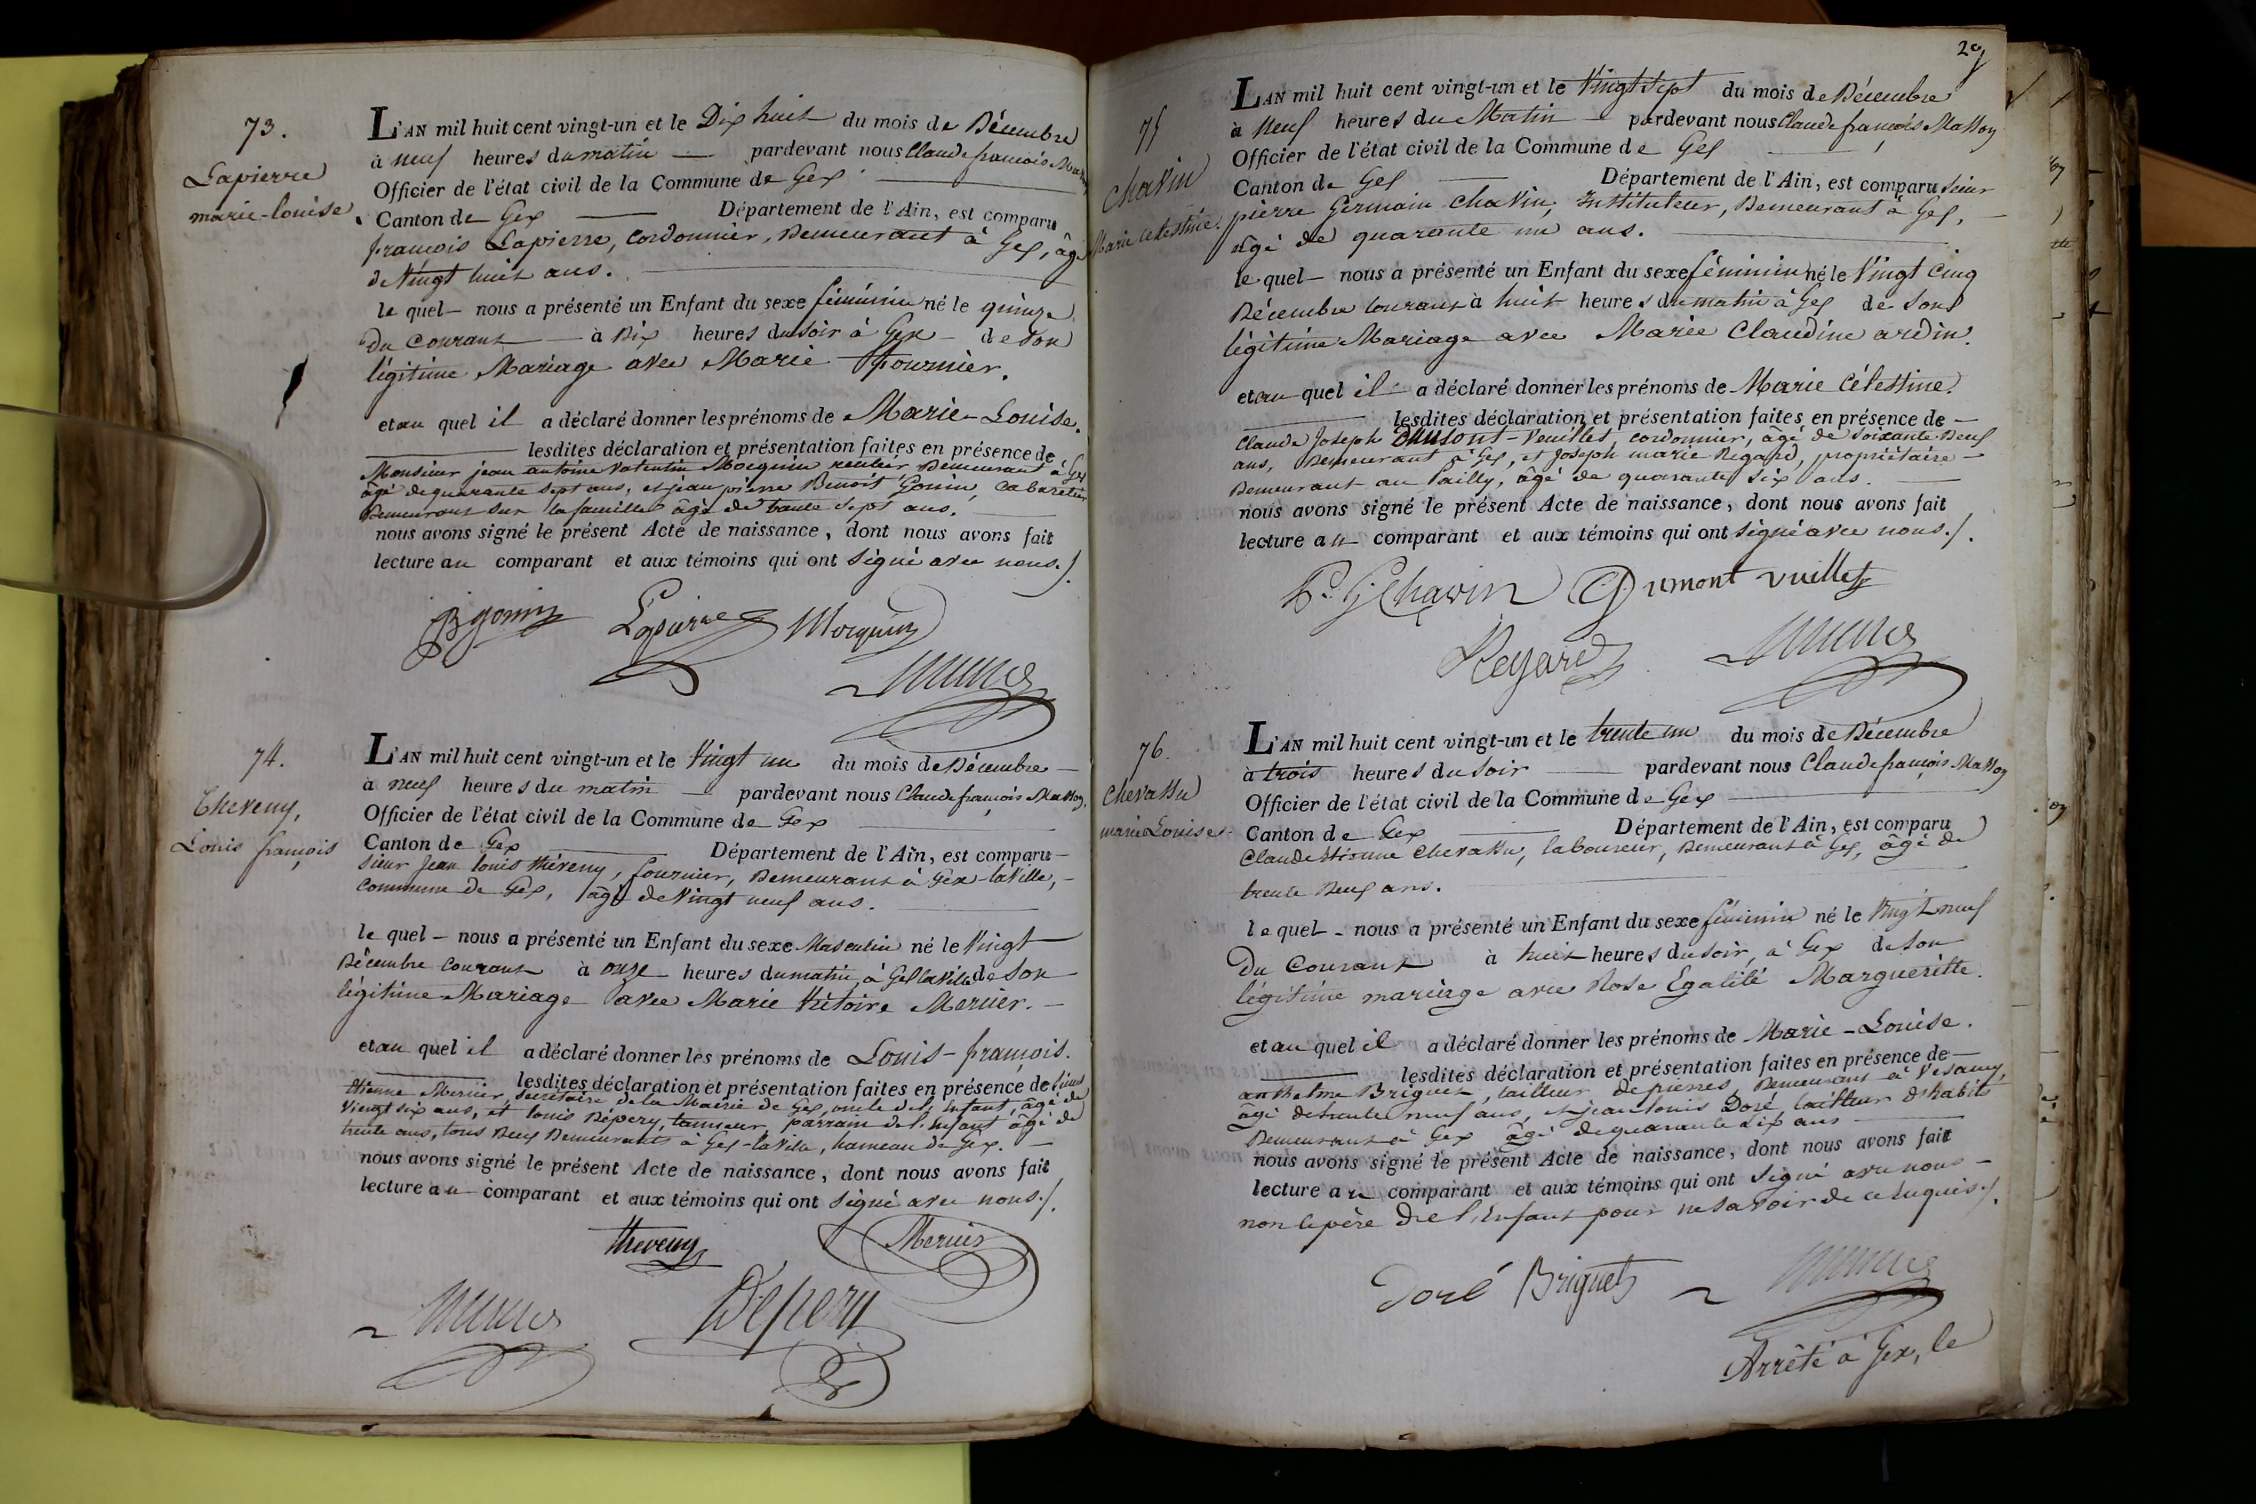 73.
Lapierre
marie-louise.
L'AN mil huit cent vingt-un et le Dix huit du mois de Décembre
à neuf heures du matin — pardevant nous Claude françois
Officier de l'état civil de la Commune de Gex.
Canton de Gex — Département de l'Ain, est comparu
françois Lapierre, cordonnier, Demeurant à Gex, âgé
de Vingt huit ans.
le quel — nous a présenté un Enfant du sexe féminin né le quinze
Du Courant — à Dix heures du soir à Gex — de Son
légitime Mariage avec Marie fournier.
et au quel il a déclaré donner les prénoms de Marie-Louise.
lesdites déclaration et présentation faites en présence de
Monsieur jean antoine Valentin Mocquin rentier Demeurant à Gex
âgé de quarante sept ans, et jean pierre Benoit Gonin, Cabaretier
Demeurant sur la famille âgé de trente sept ans.
nous avons signé le présent Acte de naissance, dont nous avons fait
lecture au comparant et aux témoins qui ont Signé avec nous./.
Lapierre Mocquin
74.
Theveny,
Louis françois
L'AN mil huit cent vingt-un et le Vingt un du mois de Décembre —
à neuf heures du matin — pardevant nous Claude françois Masson,
Officier de l'état civil de la Commune de Gex
Canton de Gex — Département de l'Ain, est comparu —
sieur Jean louis théveny, fournier, Demeurant à Gex-la Ville, —
Commune de Gex, âgé de Vingt neuf ans.
le quel — nous a présenté un Enfant du sexe Masculin né le Vingt
Décembre Courant à onze heures du matin, à Gex la Ville de Son
légitime Mariage avec Marie Victoire Mercier. —
et au quel il a déclaré donner les prénoms de Louis-françois.
lesdites déclaration et présentation faites en présence de Sieurs
étienne Mercier, Secrétaire de la Mairie de Gex, oncle de l'Enfant, âgé de
Vingt six ans, et louis Dépery, tanneur, parrain de l'Enfant âgé de
trente ans, tous Deux Demeurants à Gex-la Ville, hameau de Gex. —
nous avons signé le présent Acte de naissance, dont nous avons fait
lecture au comparant et aux témoins qui ont Signé avec nous./.
theveny Mercier
Dépery
29
75
Chavin
Marie Célestine.
L'AN mil huit cent vingt-un et le Vingt Sept du mois de Décembre
à Neuf heures du Matin — pardevant nous Claude françois Masson
Officier de l'état civil de la Commune de Gex
Canton de Gex — Département de l'Ain, est comparu Sieur
pierre Germain Chavin, Instituteur, Demeurant à Gex, —
âgé de quarante un ans.
le quel — nous a présenté un Enfant du sexe féminin né le Vingt Cinq
Décembre Courant à huit heures du matin à Gex de Son
légitime Mariage avec Marie Claudine ardin.
et au quel il — a déclaré donner les prénoms de Marie Célestine.
lesdites déclaration et présentation faites en présence de —
Claude Joseph Vuillet, cordonnier, âgé de Soixante Deux
ans, Demeurant à Gex, et Joseph marie Regard, propriétaire —
Demeurant au Pailly, âgé de quarante Six ans.
nous avons signé le présent Acte de naissance, dont nous avons fait
lecture au comparant et aux témoins qui ont Signé avec nous./.
P. G. Chavin Dumont vuillet
Regard
76.
Chevassu
marie Louise.
L'AN mil huit cent vingt-un et le trente un du mois de Décembre
à trois heures du Soir — pardevant nous Claude françois Masson
Officier de l'état civil de la Commune de Gex
Canton de Gex — Département de l'Ain, est comparu
Claude étienne Chevassu, laboureur, Demeurant à Gex, âgé de
trente Deux ans.
le quel — nous a présenté un Enfant du sexe féminin né le Vingt neuf
Du Courant à huit heures du Soir, à Gex de Son
légitime mariage avec Rose Egalité Margueritte.
et au quel il a déclaré donner les prénoms de Marie-Louise.
lesdites déclaration et présentation faites en présence de —
anthelme Briguet, tailleur de pierres, Demeurant à Vesancy,
âgé de trente neuf ans, et jean louis Doré, tailleur d'habits
Demeurant à Gex âgé de quarante Six ans
nous avons signé le présent Acte de naissance, dont nous avons fait
lecture au comparant et aux témoins qui ont Signé avec nous —
non le père De l'Enfant pour ne Savoir de ce Enquis./.
Doré Briguet
Arrêté à Gex, le